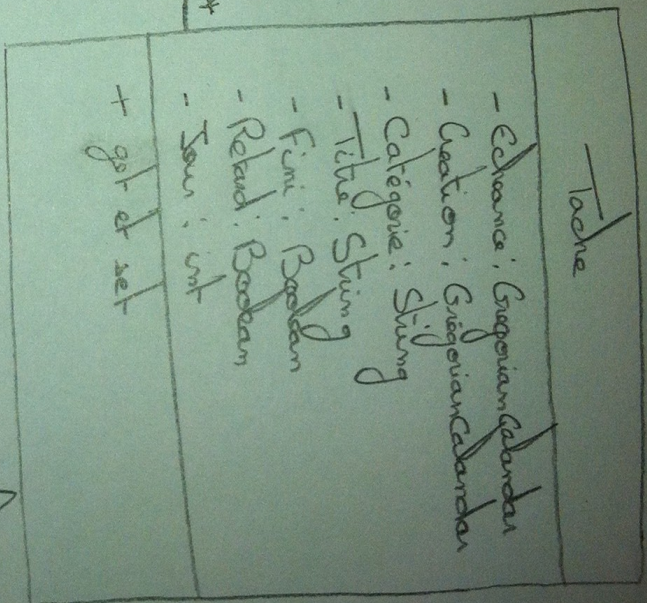 Tache
- Echeance : GregorianCalandar
- Creation : GregorianCalandar
- Catégorie : String
- Titre : String
- Fini : Boolean
- Retard : Boolean
- Jour : int
+ get et set
*